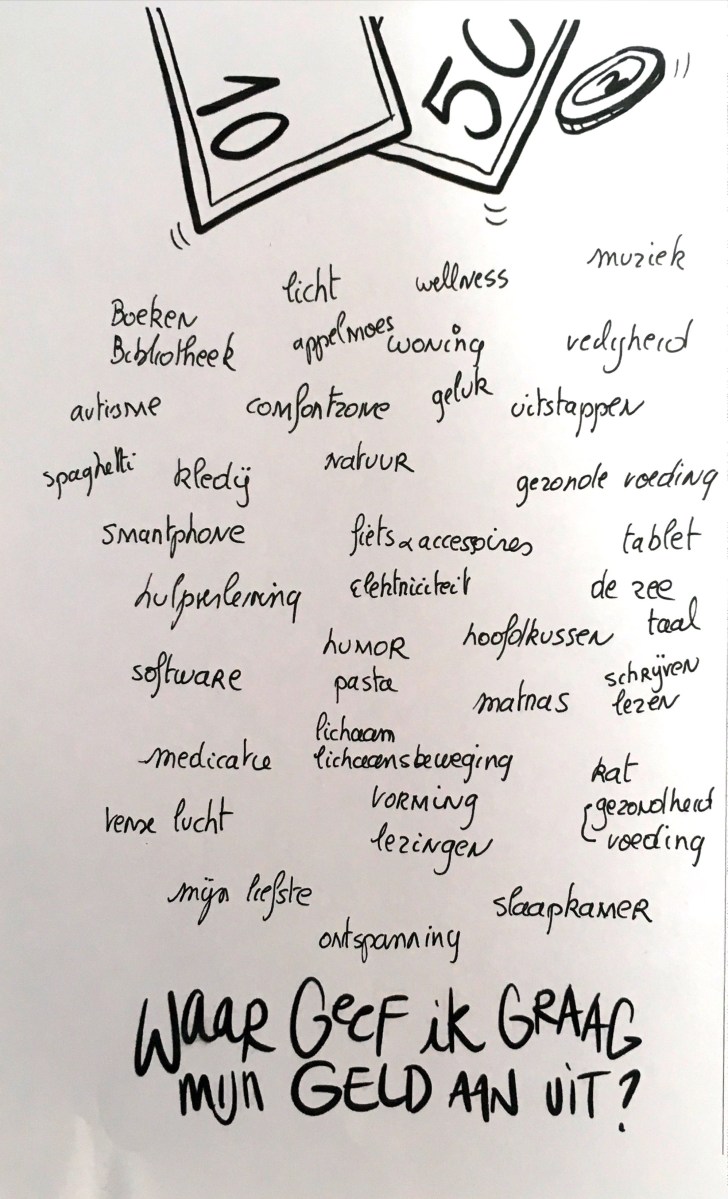 10
50
2
muziek
licht
wellness
Boeken
Bibliotheek
appelmoes
woning
veiligheid
autisme
comfortzone
geluk
uitstappen
spaghetti
kledij
Natuur
gezonde voeding
smartphone
fiets & accessoires
tablet
hulpverlening
Elektriciteit
de zee
taal
humor
hoofdkussen
software
pasta
matras
schrijven
lezen
lichaam
medicatie
lichaamsbeweging
kat
vorming
gezondheid
verse lucht
lezingen
voeding
mijn liefste
slaapkamer
ontspanning
WaaR GeeF ik GRAAG
mijn GELD AAN uiT?